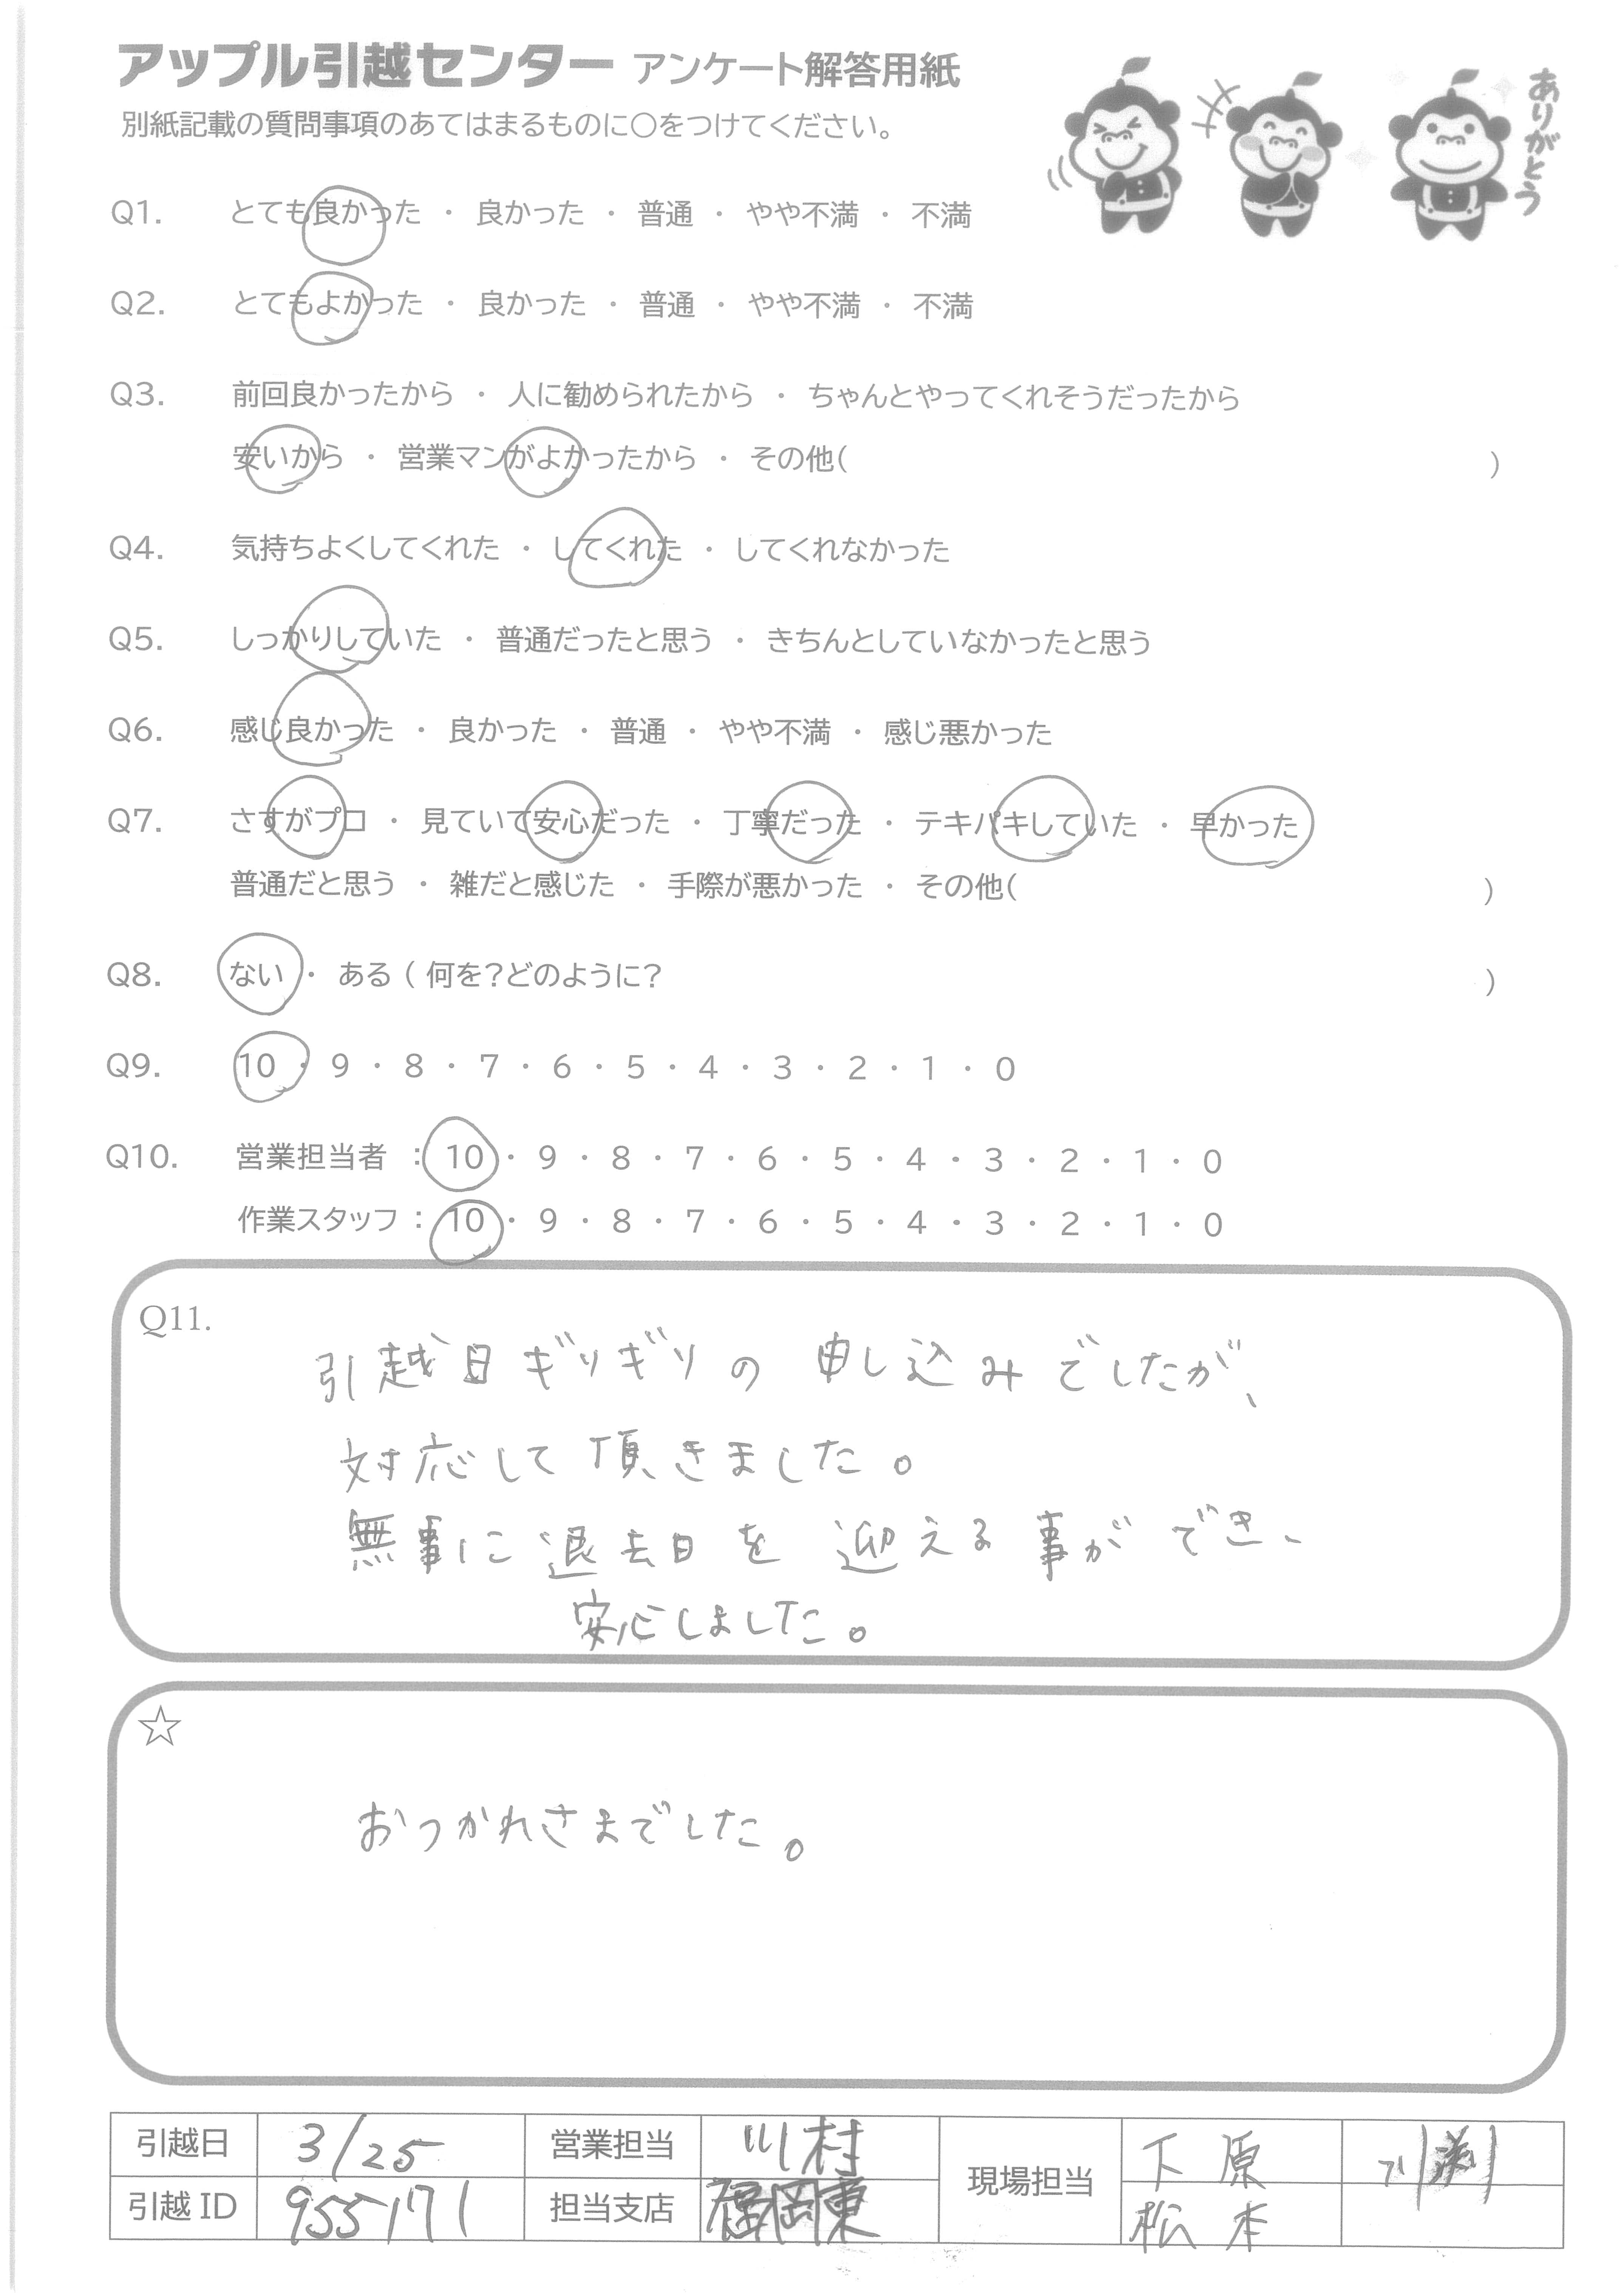 アップル引越センター アンケート解答用紙
別紙記載の質問事項のあてはまるものに○をつけてください。
ありがとう
Q1. とても良かった ・ 良かった ・ 普通 ・ やや不満 ・ 不満
Q2. とてもよかった ・ 良かった ・ 普通 ・ やや不満 ・ 不満
Q3. 前回良かったから ・ 人に勧められたから ・ ちゃんとやってくれそうだったから
安いから ・ 営業マンがよかったから ・ その他( )
Q4. 気持ちよくしてくれた ・ してくれた ・ してくれなかった
Q5. しっかりしていた ・ 普通だったと思う ・ きちんとしていなかったと思う
Q6. 感じ良かった ・ 良かった ・ 普通 ・ やや不満 ・ 感じ悪かった
Q7. さすがプロ ・ 見ていて安心だった ・ 丁寧だった ・ テキパキしていた ・ 早かった
普通だと思う ・ 雑だと感じた ・ 手際が悪かった ・ その他( )
Q8. ない ・ ある ( 何を?どのように? )
Q9. 10 ・ 9 ・ 8 ・ 7 ・ 6 ・ 5 ・ 4 ・ 3 ・ 2 ・ 1 ・ 0
Q10. 営業担当者 : 10 ・ 9 ・ 8 ・ 7 ・ 6 ・ 5 ・ 4 ・ 3 ・ 2 ・ 1 ・ 0
作業スタッフ : 10 ・ 9 ・ 8 ・ 7 ・ 6 ・ 5 ・ 4 ・ 3 ・ 2 ・ 1 ・ 0
Q11.
引越日ギリギリの申し込みでしたが、
対応して頂きました。
無事に退去日を迎える事ができ、
安心しました。
☆
おつかれさまでした。
引越日 3/25 営業担当 川村 現場担当 下原
引越ID 955171 担当支店 福岡東 松本